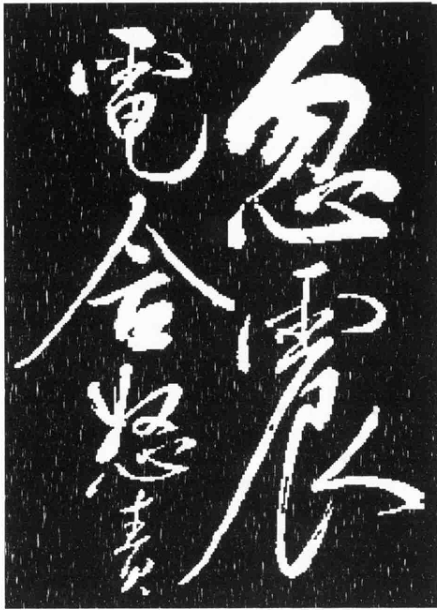 忽震
電含怒責